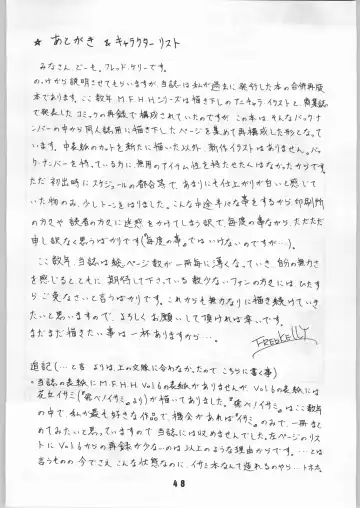 ★ あとがき & キャラクター リスト
みなさん、どーも。フレッド・ケリーです。
の、けから説明させてもらいますが、当誌は私が過去に発行した本の合併再版
本であります。ここ数年 M.F.H.H.シリーズは描き下しのアニキャラ・イラストと、商業誌
で発表したコミックの再録で構成されていたのですが、この本は、そんなバックナ
ンバーの中から同人誌用に描き下したページを集めて再構成した形となって
います。中表紙のカットを新たに描いた以外、新作イラストはありません。バッ
ク・ナンバーを持っている方に無用のアイテム性を持たせたくはなかったからです。
ただ初出時にスケジュールの都合等で、あまりにも仕上がりが白いと感じて
いた物のみ、少しトーンをはりました。こんな中途半端な事をするから印刷所
の方々や読者の方々に迷惑をかけてしまう訳で、毎度の事ながら、ただただ
申し訳なく思うばかりです(『毎度の事』ではいけないのですが…)。
ここ数年、当誌は総ページ数が一冊毎に薄くなっていき、自分の無力さ
を感じるとともに期待して下さっている数少ないファンの方々には、ひたす
らご免なさいと言うばかりです。これからも無理なりに描き続けていき
たいと思いますので、よろしくお願いして頂ければ幸いです。
まだまだ描きたい事は一杯ありますから…。
FREDKELLY
追記(…と言うよりは、上の文脈に合わなかったので こちらに書く事)
・当誌の表紙に M.F.H.H. Vol.6の表紙がありませんが、Vol.6の表紙には
花丘イサミ(『飛べ!イサミ』より)が描いてありました。『飛べ!イサミ』はここ数年
の中で、私が最も好きな作品で、機会があれば『イサミ』のみで、一冊まと
めてみたいと思っていますので当誌には収めませんでした。左ページのリス
トに Vol.6からの再録が少ないのは以上のような理由からです。…とは
言うものの 今でさえこんな状態なのに、イサミ本なんて造れるのやら… トホホ。
48